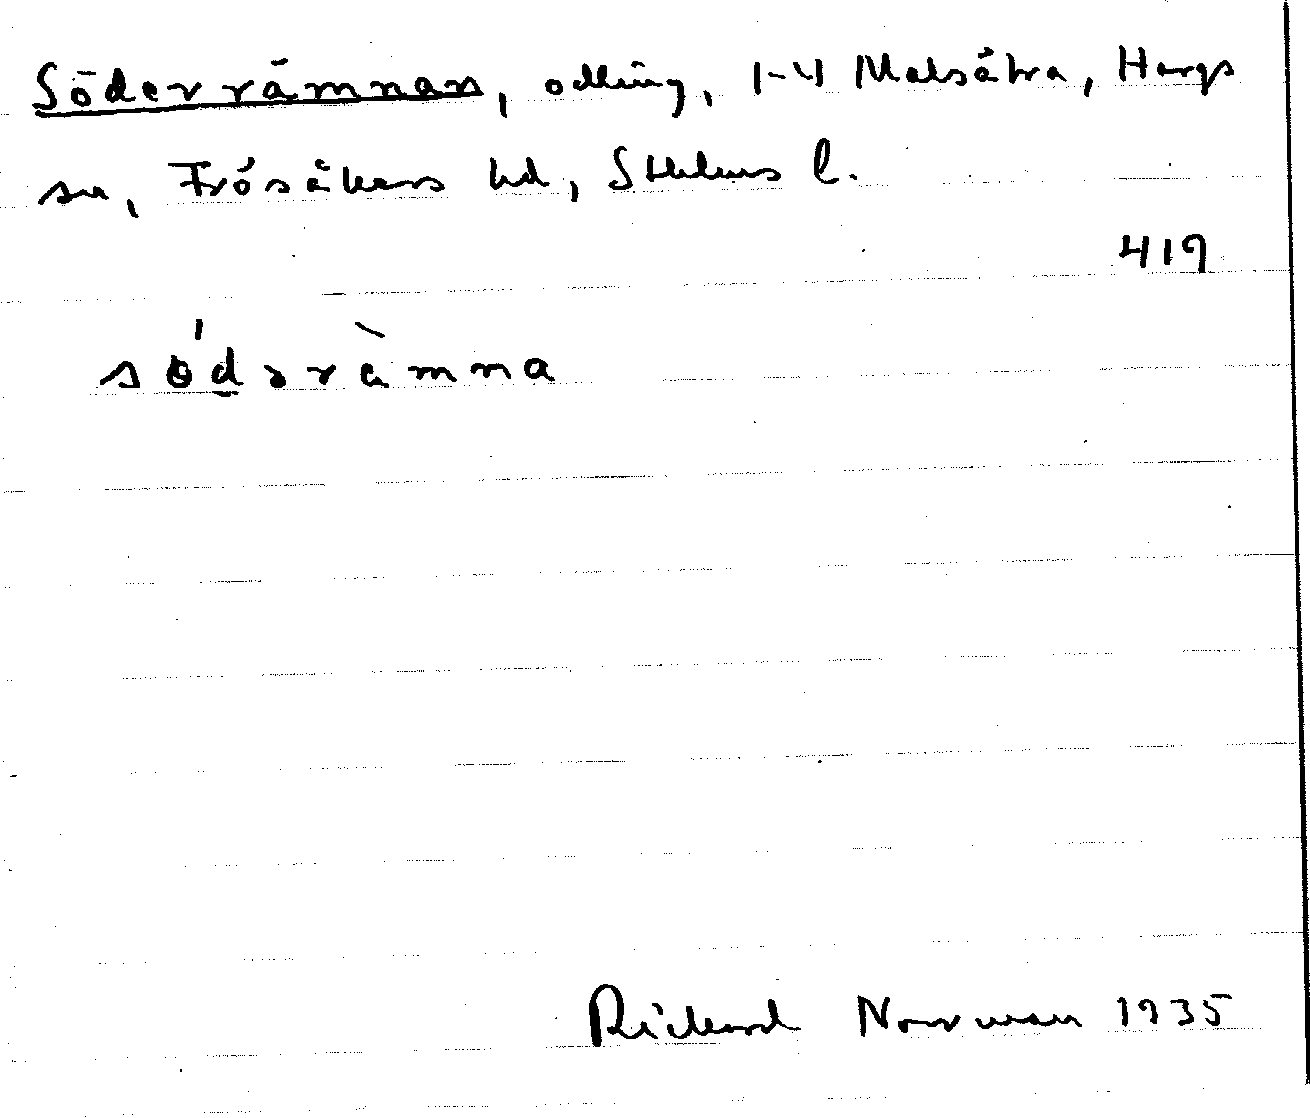 Söderrämnan, odling, 1-4 Malsätra, Hargs
sn, Frösåkers hd, Sthlms l.
419
södərämna
Rickard Norrman 1935